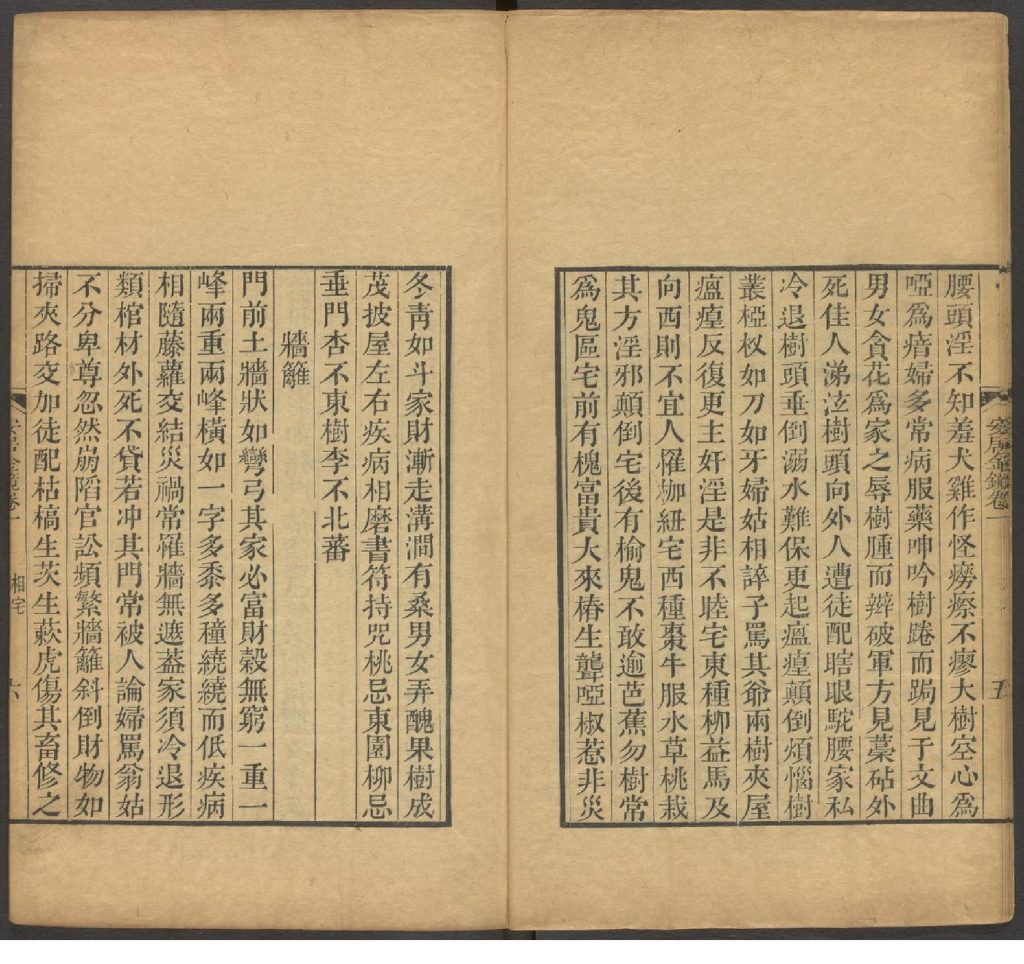 安居金鏡卷一
五
腰頭淫不知羞犬雞作怪癆瘵不瘳大樹空心爲
啞爲瘖婦多常病服藥呻吟樹踡而跼見子文曲
男女貪花爲家之辱樹腫而辮破軍方見藁砧外
死佳人涕泫樹頭向外人遭徒配瞎眼駝腰家私
冷退樹頭垂倒溺水難保更起瘟㾮顛倒煩惱樹
叢椏杈如刀如牙婦姑相誶子罵其爺兩樹夾屋
瘟㾮反復更主奸淫是非不睦宅東種柳益馬及
向西則不宜人罹枷紐宅西種棗牛服水草桃栽
其方淫邪顛倒宅後有榆鬼不敢逾芭蕉勿樹常
爲鬼區宅前有槐富貴大來椿生聾啞椒惹非災
冬青如斗家財漸走溝澗有桑男女弄醜果樹成
茂披屋左右疾病相磨書符持咒桃忌東園柳忌
垂門杏不東樹李不北蕃
牆籬
門前土牆狀如彎弓其家必富財穀無窮一重一
峰兩重兩峰橫如一字多黍多穜繞繞而低疾病
相隨藤蘿交結災禍常罹牆無遮蓋家須冷退形
類棺材外死不貸若冲其門常被人論婦罵翁姑
不分卑尊忽然崩陷官訟頻繁牆籬斜倒財物如
掃夾路交加徒配枯槁生茨生蔌虎傷其畜修之
安居金鏡卷一
相宅
六